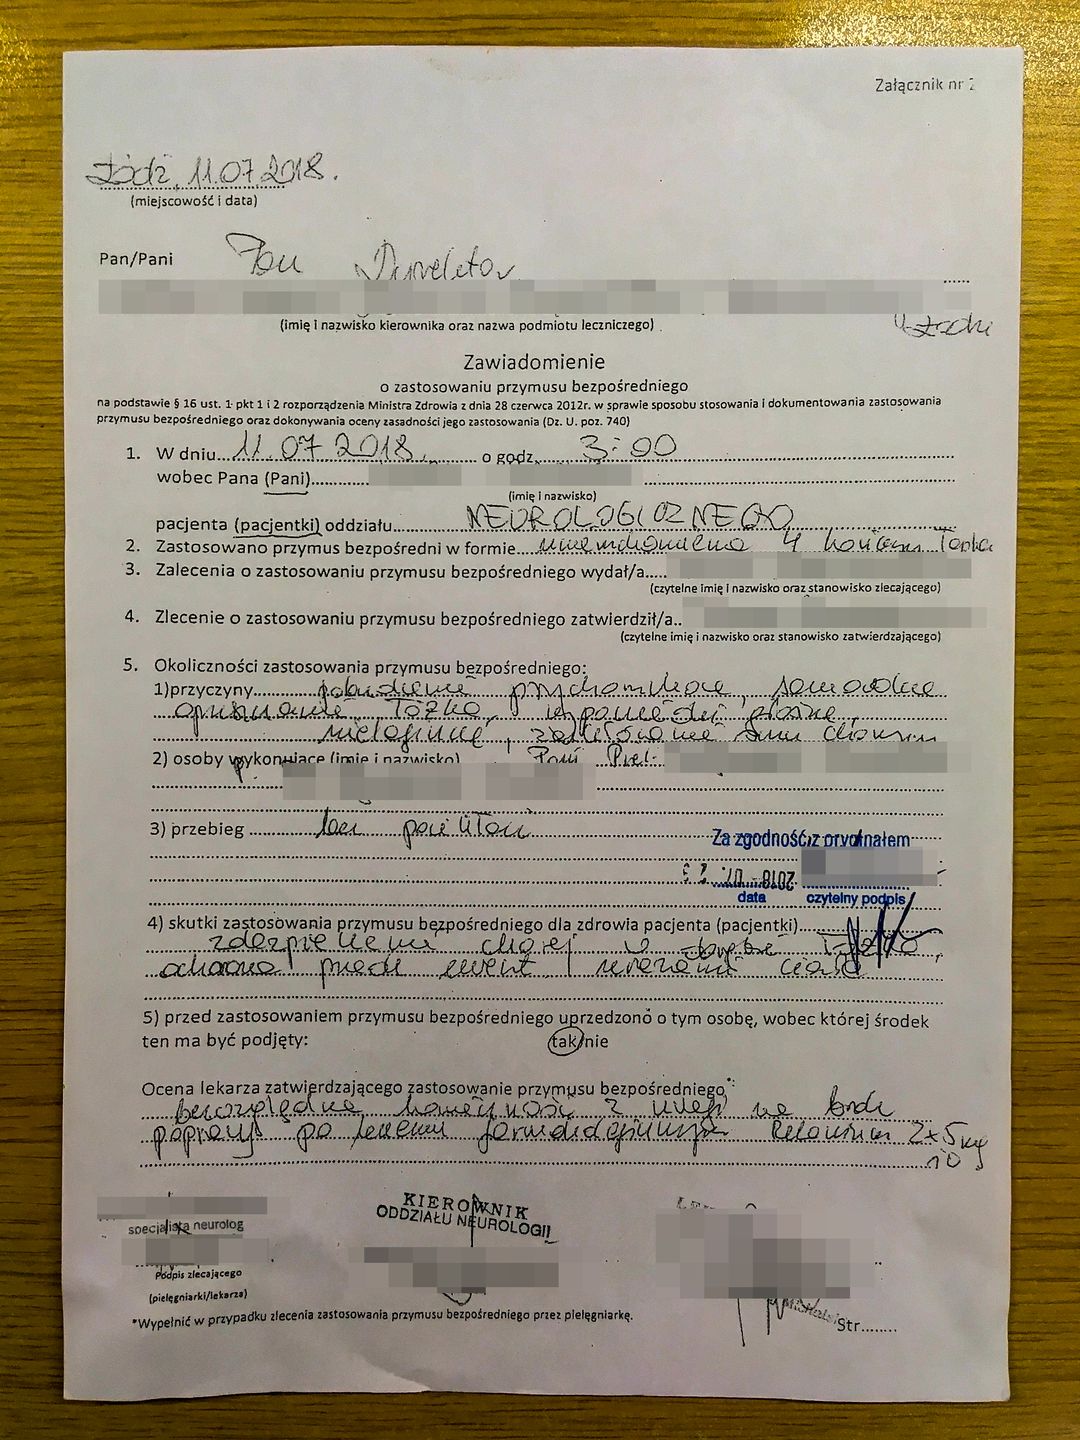 Załącznik nr 2
Łódź, 11.07.2018.
(miejscowość i data)
Pan/Pani Pan Dyrektor
(imię i nazwisko kierownika oraz nazwa podmiotu leczniczego)
Zawiadomienie
o zastosowaniu przymusu bezpośredniego
na podstawie § 16 ust. 1 pkt 1 i 2 rozporządzenia Ministra Zdrowia z dnia 28 czerwca 2012r. w sprawie sposobu stosowania i dokumentowania zastosowania
przymusu bezpośredniego oraz dokonywania oceny zasadności jego zastosowania (Dz. U. poz. 740)
1. W dniu 11.07 2018 o godz. 3:00
wobec Pana (Pani)
(imię i nazwisko)
pacjenta (pacjentki) oddziału NEUROLOGICZNEGO
2. Zastosowano przymus bezpośredni w formie unieruchomienia 4 kończyn
3. Zalecenia o zastosowaniu przymusu bezpośredniego wydał/a
(czytelne imię i nazwisko oraz stanowisko zlecającego)
4. Zlecenie o zastosowaniu przymusu bezpośredniego zatwierdził/a
(czytelne imię i nazwisko oraz stanowisko zatwierdzającego)
5. Okoliczności zastosowania przymusu bezpośredniego:
1)przyczyny pobudzenie psychoruchowe, samowolne
opuszczanie łóżka, wypowiedzi głośne,
nielogiczne,
2) osoby wykonujące (imię i nazwisko) Pani Piel.
3) przebieg bez powikłań
Za zgodność z oryginałem
2018-07-
data czytelny podpis
4) skutki zastosowania przymusu bezpośredniego dla zdrowia pacjenta (pacjentki)
zabezpieczenie chorej w łóżka,
ochrona przed ewent urazami ciała
5) przed zastosowaniem przymusu bezpośredniego uprzedzono o tym osobę, wobec której środek
ten ma być podjęty: tak/nie
Ocena lekarza zatwierdzającego zastosowanie przymusu bezpośredniego*
bezwzględna konieczność z uwagi na brak
poprawy po leczeniu farmakologicznym Relanium 2x5mg
10
specjalista neurolog
KIEROWNIK
ODDZIAŁU NEUROLOGII
Podpis zlecającego
(pielęgniarki/lekarza)
*Wypełnić w przypadku zlecenia zastosowania przymusu bezpośredniego przez pielęgniarkę.
Str.